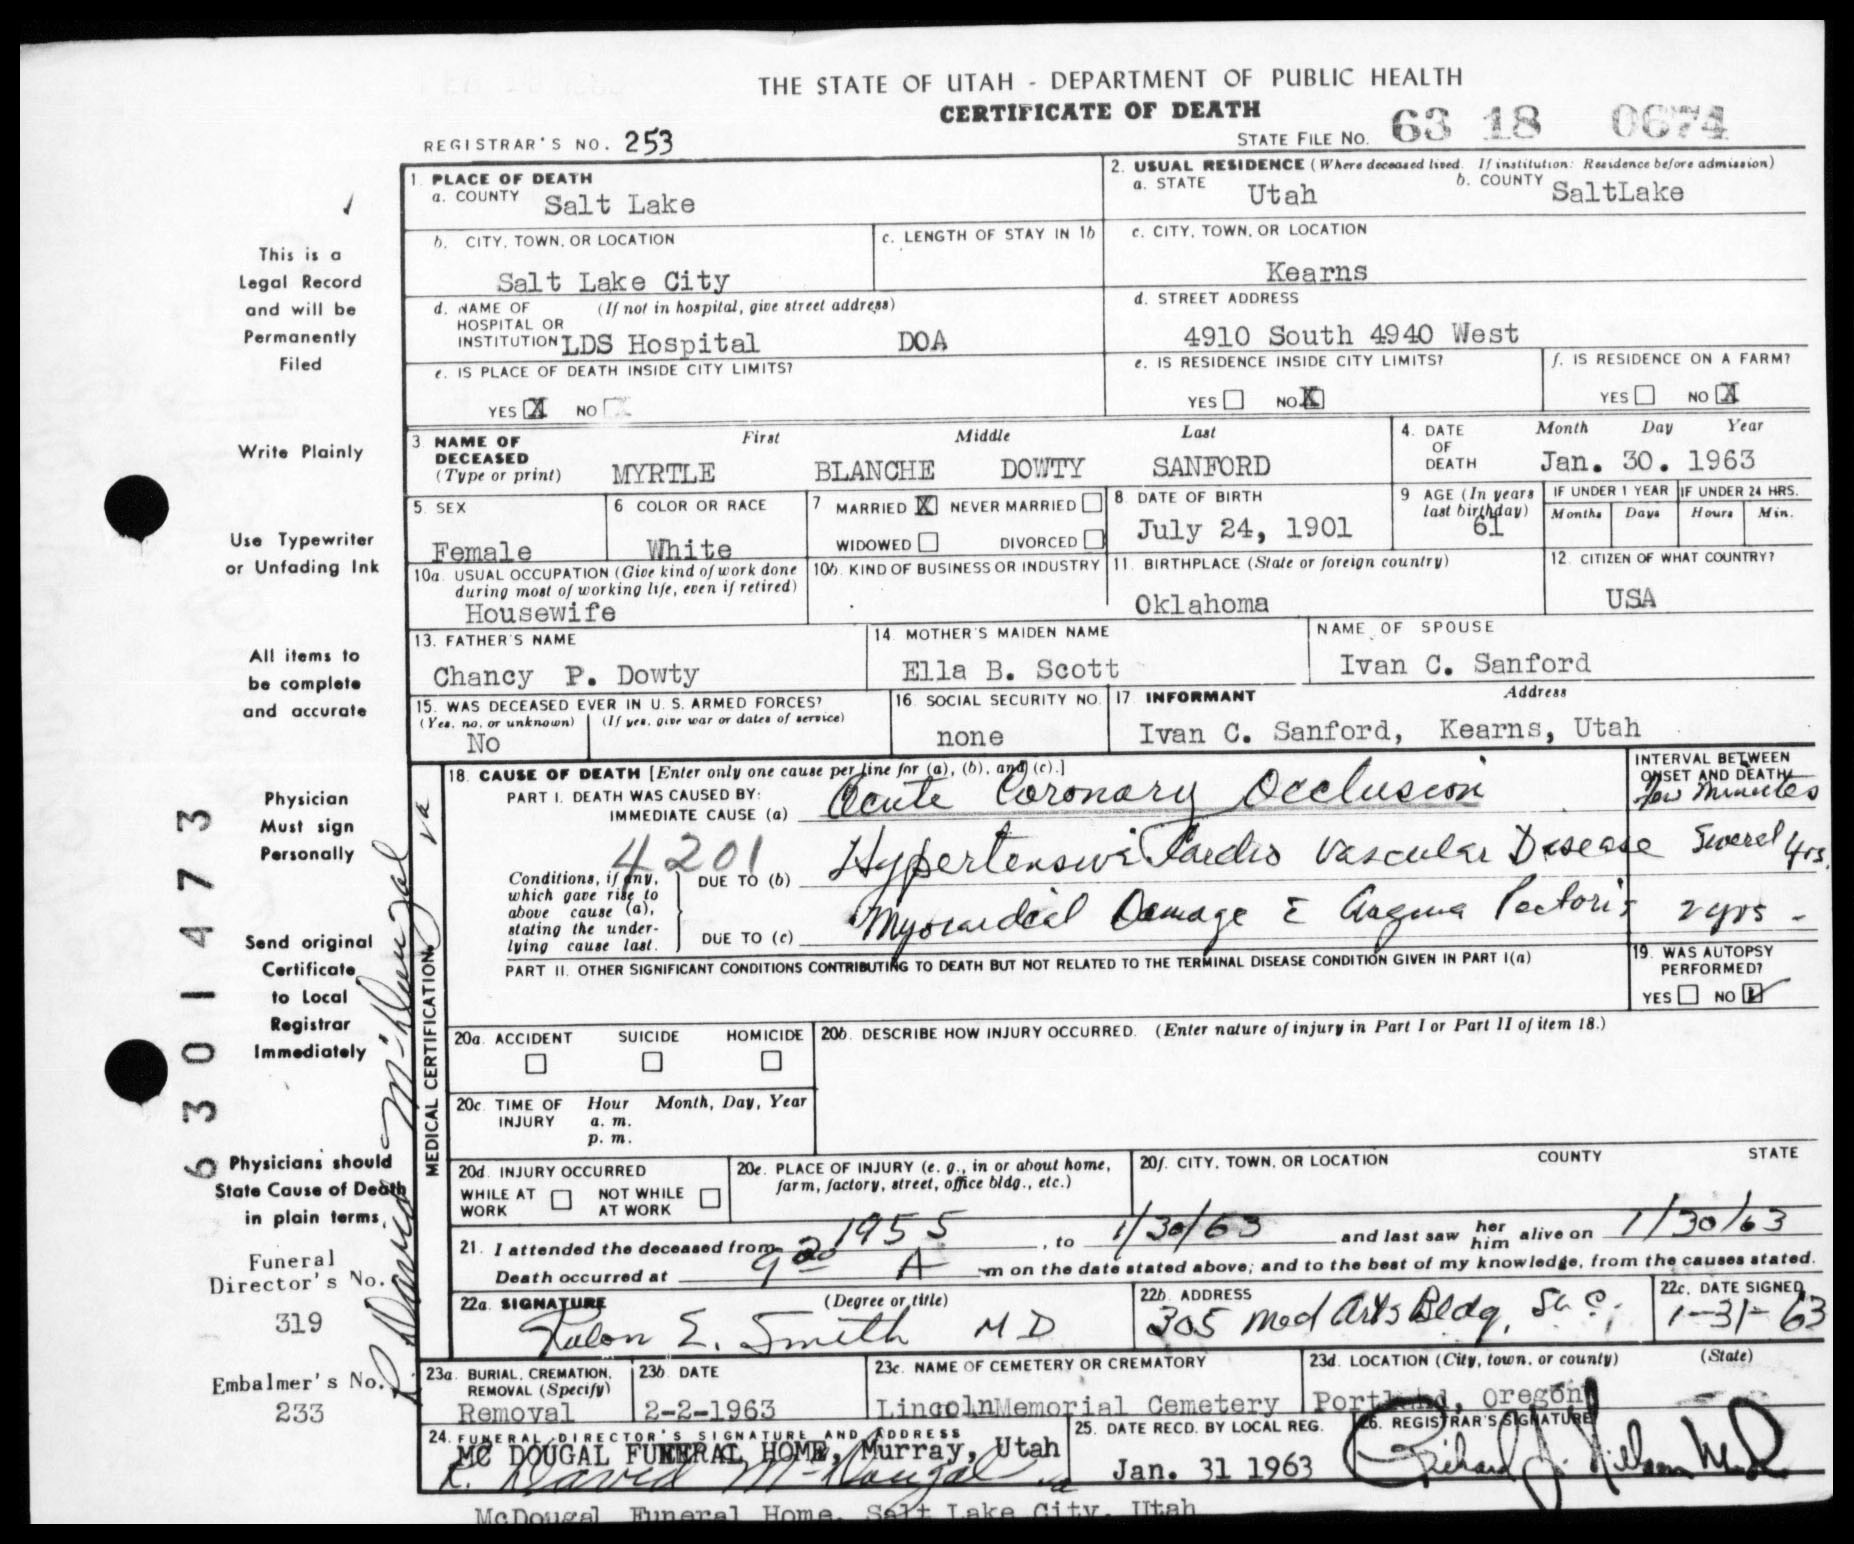 THE STATE OF UTAH - DEPARTMENT OF PUBLIC HEALTH
CERTIFICATE OF DEATH
REGISTRAR'S NO. 253
STATE FILE NO. 63 18 0674
1. PLACE OF DEATH
a. COUNTY Salt Lake
2. USUAL RESIDENCE (Where deceased lived. If institution: Residence before admission)
a. STATE Utah b. COUNTY SaltLake
b. CITY, TOWN, OR LOCATION
Salt Lake City
c. LENGTH OF STAY IN 1b
c. CITY, TOWN, OR LOCATION
Kearns
d. NAME OF HOSPITAL OR INSTITUTION (If not in hospital, give street address)
LDS Hospital DOA
d. STREET ADDRESS
4910 South 4940 West
e. IS PLACE OF DEATH INSIDE CITY LIMITS?
YES X NO
e. IS RESIDENCE INSIDE CITY LIMITS?
YES NO X
f. IS RESIDENCE ON A FARM?
YES NO X
3. NAME OF DECEASED (Type or print)
First Middle Last
MYRTLE BLANCHE DOWTY SANFORD
4. DATE OF DEATH
Month Day Year
Jan. 30. 1963
5. SEX
Female
6 COLOR OR RACE
White
7 MARRIED X NEVER MARRIED
WIDOWED DIVORCED
8 DATE OF BIRTH
July 24, 1901
9 AGE (In years last birthday)
61
IF UNDER 1 YEAR
Months Days
IF UNDER 24 HRS.
Hours Min.
10a. USUAL OCCUPATION (Give kind of work done during most of working life, even if retired)
Housewife
10b. KIND OF BUSINESS OR INDUSTRY
11. BIRTHPLACE (State or foreign country)
Oklahoma
12. CITIZEN OF WHAT COUNTRY?
USA
13. FATHER'S NAME
Chancy P. Dowty
14. MOTHER'S MAIDEN NAME
Ella B. Scott
NAME OF SPOUSE
Ivan C. Sanford
15. WAS DECEASED EVER IN U. S. ARMED FORCES?
(Yes, no, or unknown) (If yes, give war or dates of service)
No
16. SOCIAL SECURITY NO.
none
17. INFORMANT Address
Ivan C. Sanford, Kearns, Utah
MEDICAL CERTIFICATION
18. CAUSE OF DEATH [Enter only one cause per line for (a), (b), and (c).]
PART I. DEATH WAS CAUSED BY:
IMMEDIATE CAUSE (a) Acute Coronary Occlusion
INTERVAL BETWEEN ONSET AND DEATH
few minutes
4201
Conditions, if any, which gave rise to above cause (a), stating the underlying cause last.
DUE TO (b) Hypertensive Cardio Vascular Disease Several yrs.
DUE TO (c) Myocardial Damage c Angina Pectoris 2 yrs -
PART II. OTHER SIGNIFICANT CONDITIONS CONTRIBUTING TO DEATH BUT NOT RELATED TO THE TERMINAL DISEASE CONDITION GIVEN IN PART I(a)
19. WAS AUTOPSY PERFORMED?
YES NO
20a. ACCIDENT SUICIDE HOMICIDE
20b. DESCRIBE HOW INJURY OCCURRED. (Enter nature of injury in Part I or Part II of item 18.)
20c. TIME OF INJURY Hour Month, Day, Year
a. m.
p. m.
20d. INJURY OCCURRED
WHILE AT WORK NOT WHILE AT WORK
20e. PLACE OF INJURY (e. g., in or about home, farm, factory, street, office bldg., etc.)
20f. CITY, TOWN, OR LOCATION COUNTY STATE
21. I attended the deceased from 1955, to 1/30/63 and last saw her him alive on 1/30/63
Death occurred at 9 20 A m on the date stated above; and to the best of my knowledge, from the causes stated.
22a. SIGNATURE (Degree or title)
Rulon E. Smith M D
22b. ADDRESS
305 Med Arts Bldg, SLC.
22c. DATE SIGNED
1-31-63
23a. BURIAL, CREMATION, REMOVAL (Specify)
Removal
23b. DATE
2-2-1963
23c. NAME OF CEMETERY OR CREMATORY
LincolnMemorial Cemetery
23d. LOCATION (City, town, or county) (State)
Portland, Oregon
24. FUNERAL DIRECTOR'S SIGNATURE AND ADDRESS
MC DOUGAL FUNERAL HOME, Murray, Utah
R. David McDougal
25. DATE RECD. BY LOCAL REG.
Jan. 31 1963
26. REGISTRAR'S SIGNATURE
McDougal Funeral Home, Salt Lake City, Utah
This is a
Legal Record
and will be
Permanently
Filed
Write Plainly
Use Typewriter
or Unfading Ink
All items to
be complete
and accurate
Physician
Must sign
Personally
Send original
Certificate
to Local
Registrar
Immediately
Physicians should
State Cause of Death
in plain terms,
Funeral
Director's No.
319
Embalmer's No.
233
6301473
R. David McDougal